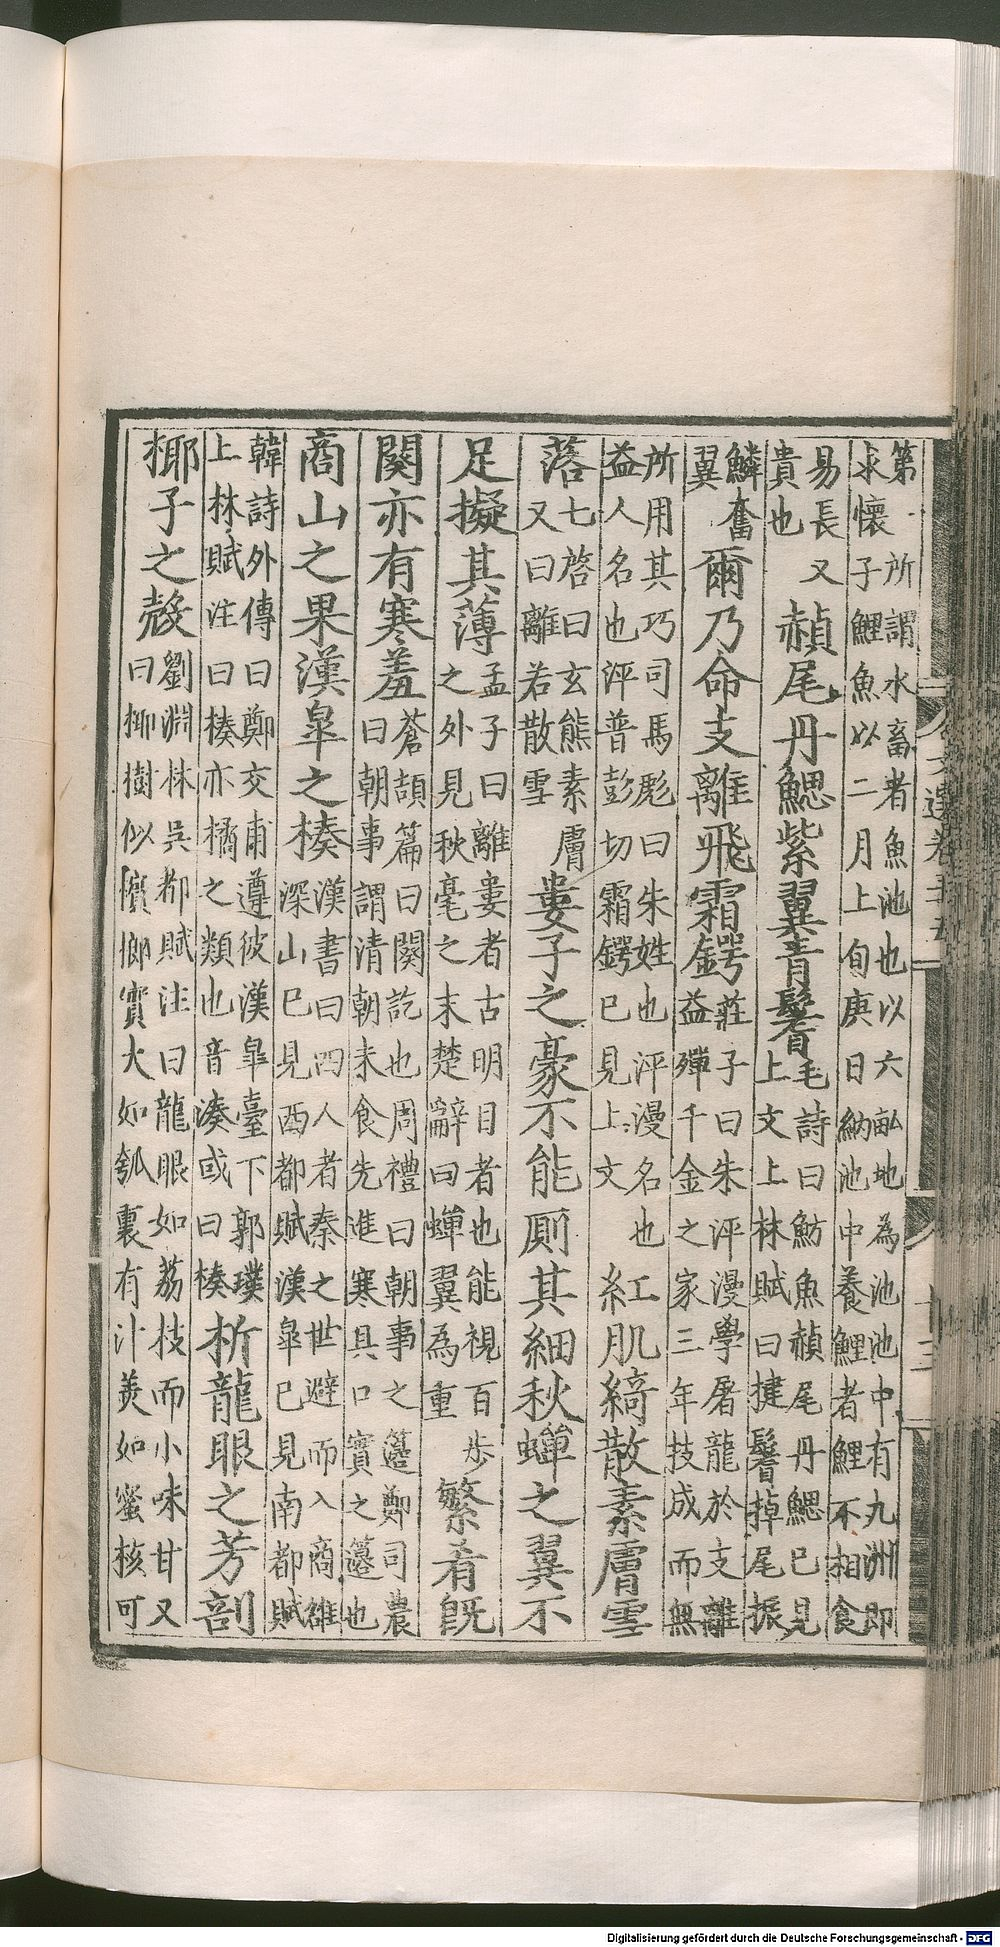 第所謂水畜者魚池也以六畝地為池池中有九洲即
求懷子鯉魚以二月上旬庚日納池中養鯉者鯉不相食
易長又
貴也
赬尾丹鰓紫翼青鬐
毛詩曰魴魚赬尾丹鰓已見
上文上林賦曰揵鬐掉尾振
鱗奮
翼
爾乃命支離飛霜鍔
莊子曰朱泙漫學屠龍於支離
益殫千金之家三年技成而無
所用其巧司馬彪曰朱姓也泙漫名也
益人名也泙普彭切霜鍔已見上文
紅肌綺散素膚雪
落
七啓曰玄熊素膚
又曰離若散雪
婁子之豪不能厠其細秋蟬之翼不
足擬其薄
孟子曰離婁者古明目者也能視百步
之外見秋毫之末楚辭曰蟬翼為重
繁肴既
闋亦有寒羞
蒼頡篇曰闋訖也周禮曰朝事之籩鄭司農
曰朝事謂清朝未食先進寒具口實之籩也
商山之果漢臯之楱
漢書曰四人者秦之世避而入商雒
深山已見西都賦漢臯已見南都賦
韓詩外傳曰鄭交甫遵彼漢臯臺下郭璞
上林賦注曰楱亦橘之類也音湊或曰楱
析龍眼之芳剖
椰子之殼
劉淵林吳都賦注曰龍眼如荔枝而小味甘又
曰椰樹似檳榔實大如瓠裏有汁美如蜜核可
Digitalisierung gefördert durch die Deutsche Forschungsgemeinschaft - DFG